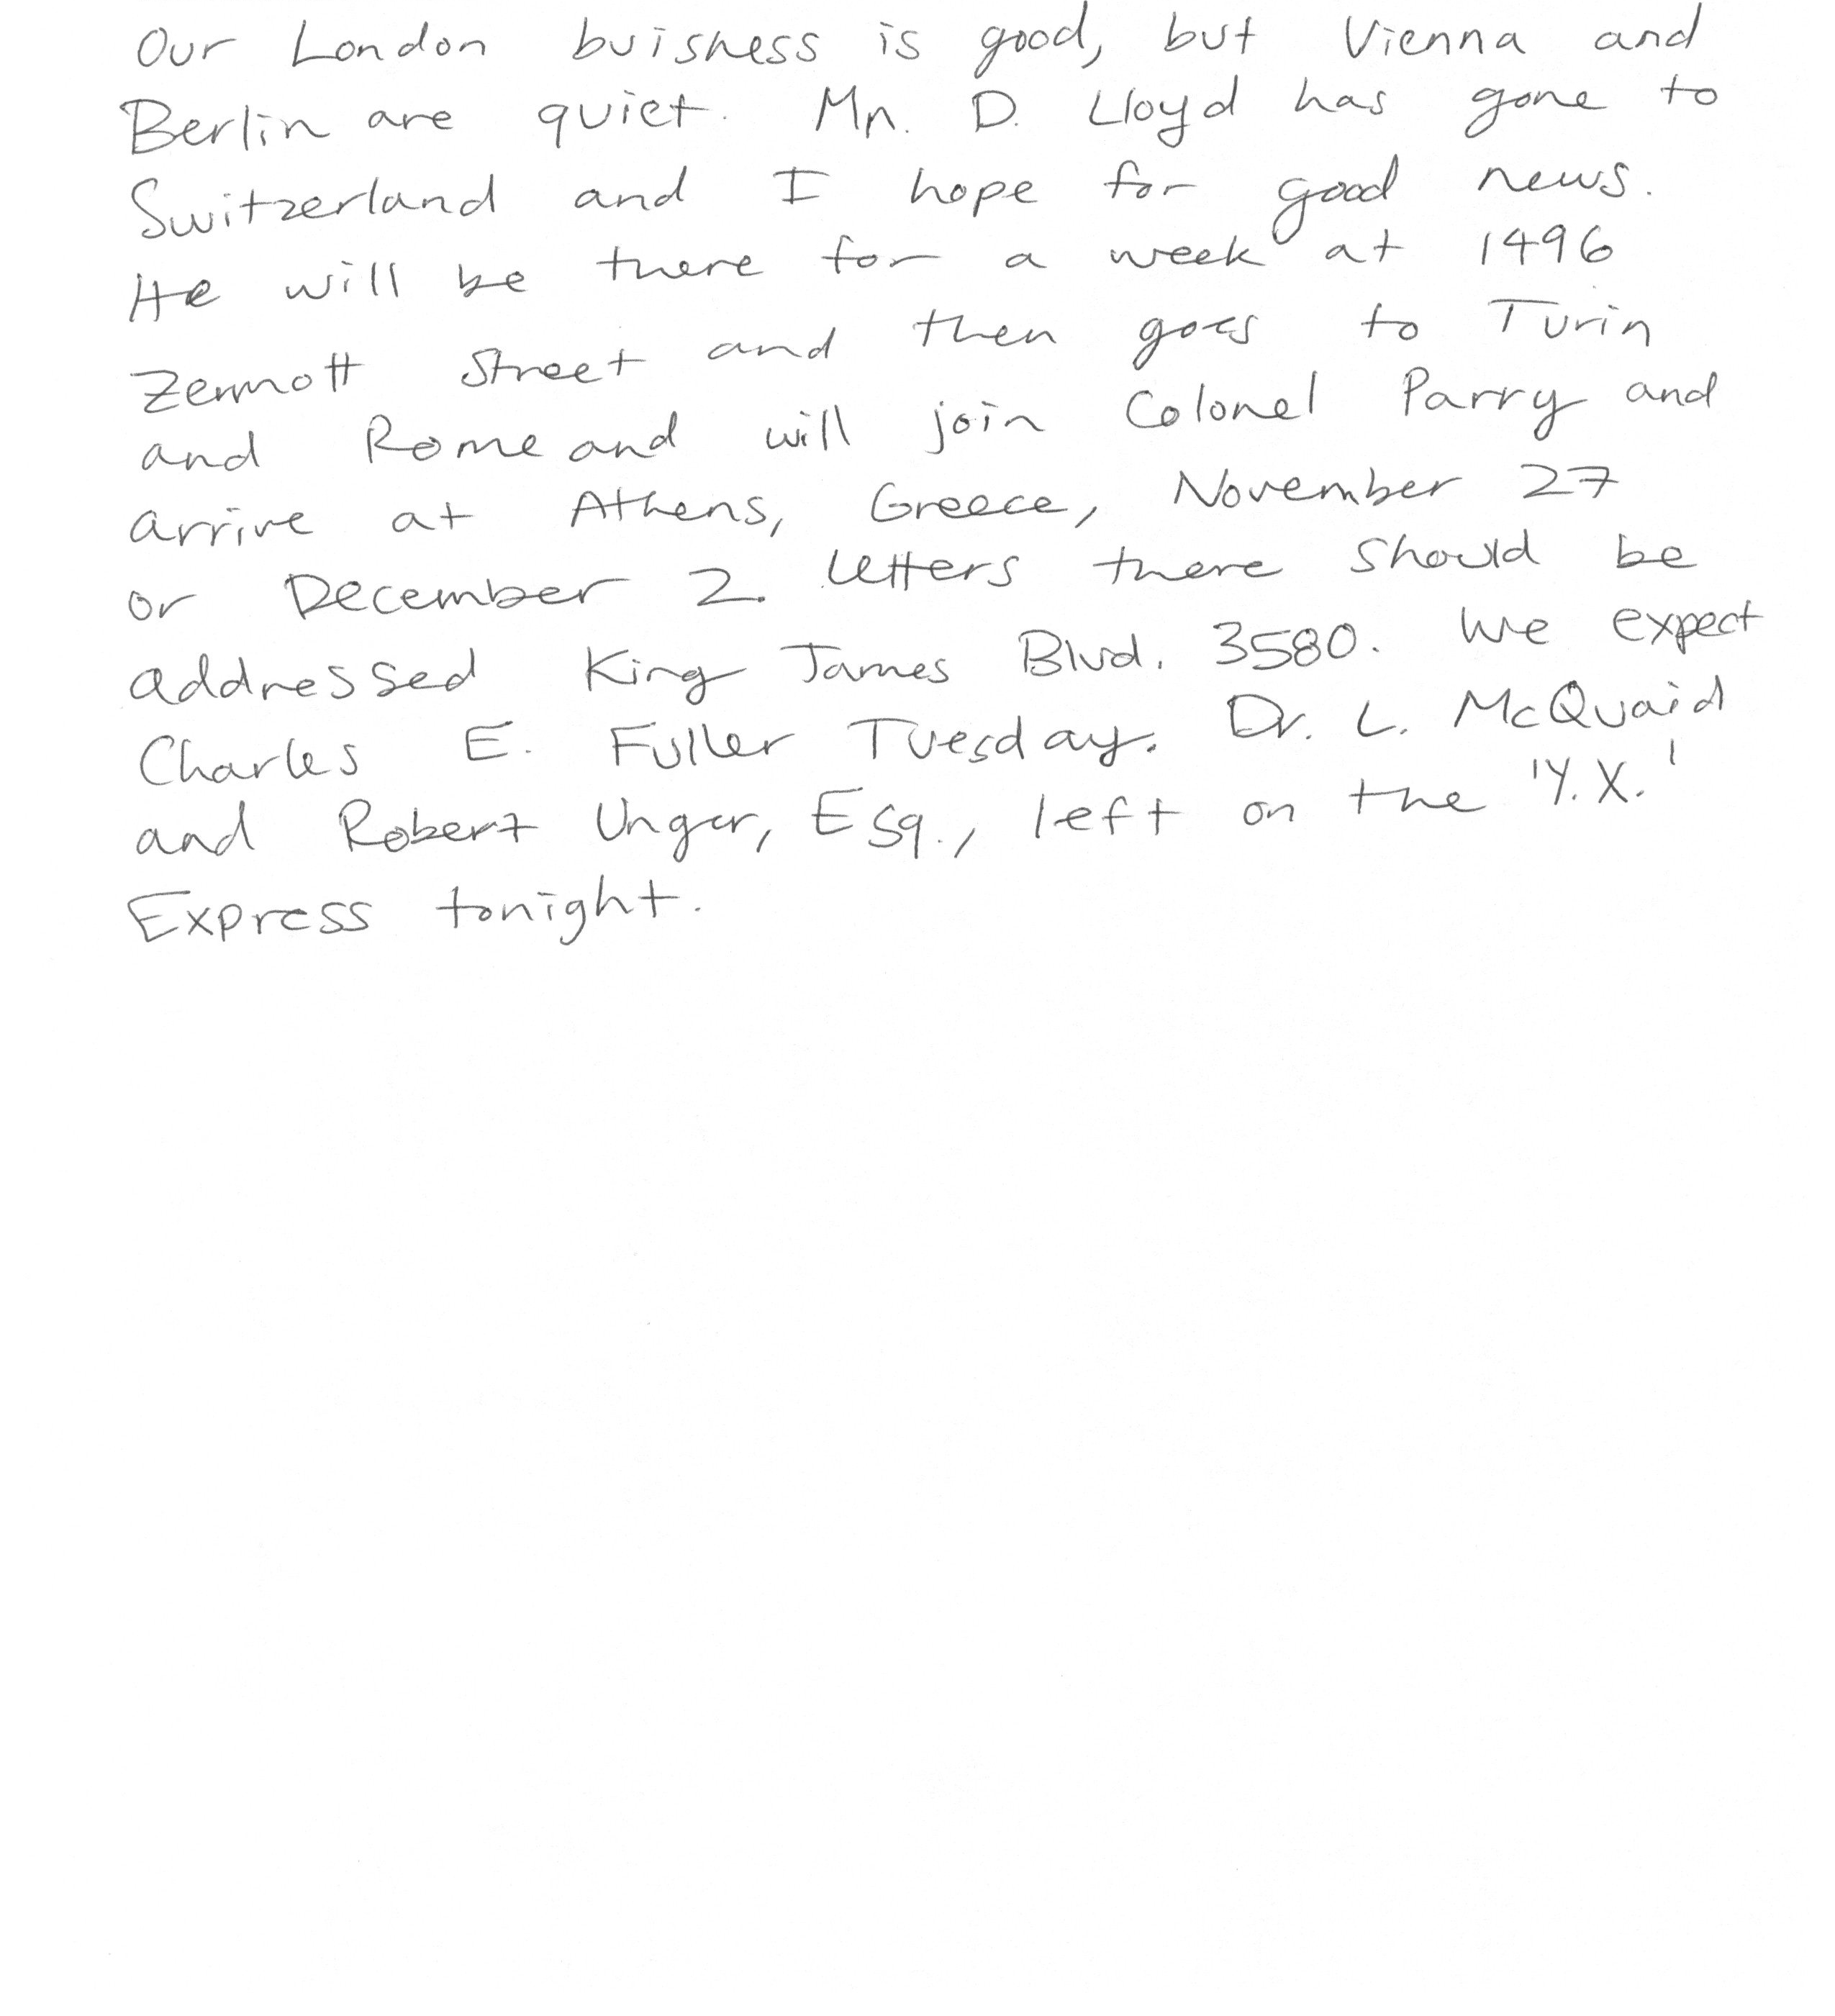 Our London buisness is good, but Vienna and
Berlin are quiet. Mr. D. Lloyd has gone to
Switzerland and I hope for good news.
He will be there for a week at 1496
Zermott Street and then goes to Turin
and Rome and will join Colonel Parry and
arrive at Athens, Greece, November 27
or December 2. Letters there should be
addressed King James Blvd. 3580. We expect
Charles E. Fuller Tuesday. Dr. L. McQuaid
and Robert Unger, Esq., left on the 'Y.X.'
Express tonight.